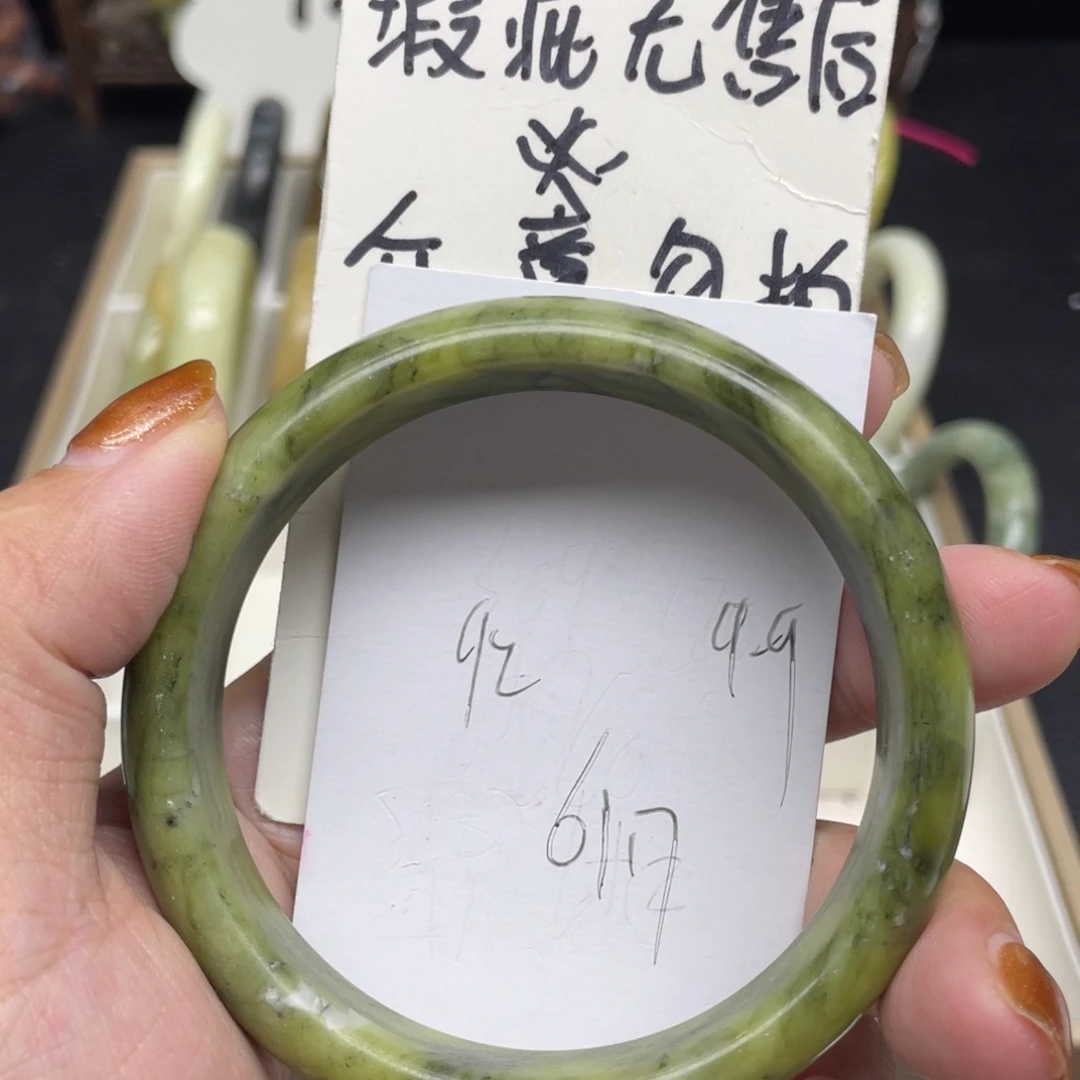 瑕疵无售后
介意勿拍
92 9.9
6117